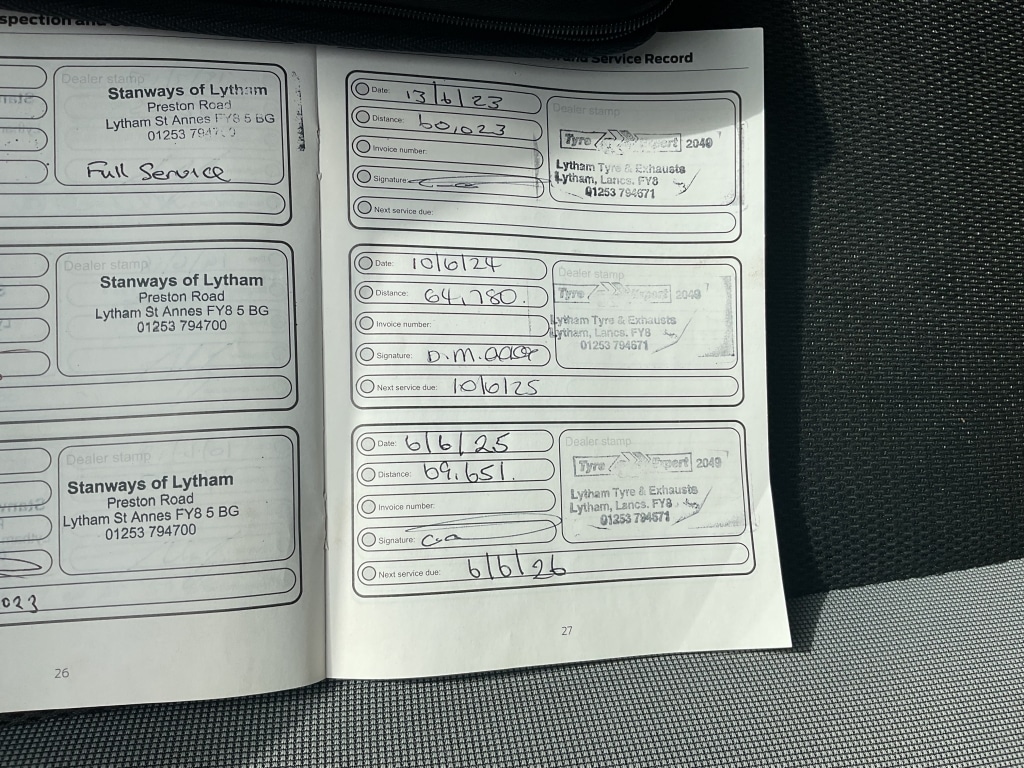 spection and
Dealer stamp
Stanways of Lytham
Preston Road
Lytham St Annes FY8 5 BG
01253 794700
Full Service
Dealer stamp
Stanways of Lytham
Preston Road
Lytham St Annes FY8 5 BG
01253 794700
Dealer stamp
Stanways of Lytham
Preston Road
Lytham St Annes FY8 5 BG
01253 794700
023
26
and Service Record
Date: 13/6/23
Distance: 60,023
Invoice number:
Signature:
Next service due:
Dealer stamp
Tyre Expert 2049
Lytham Tyre & Exhausts
Lytham, Lancs. FY8
01253 794671
Date: 10/6/24
Distance: 64,780.
Invoice number:
Signature: D.M.
Next service due: 10/6/25
Dealer stamp
Tyre Expert 2049
Lytham Tyre & Exhausts
Lytham, Lancs. FY8
01253 794671
Date: 6/6/25
Distance: 69,651.
Invoice number:
Signature:
Next service due: 6/6/26
Dealer stamp
Tyre Expert 2049
Lytham Tyre & Exhausts
Lytham, Lancs. FY8
01253 794671
27